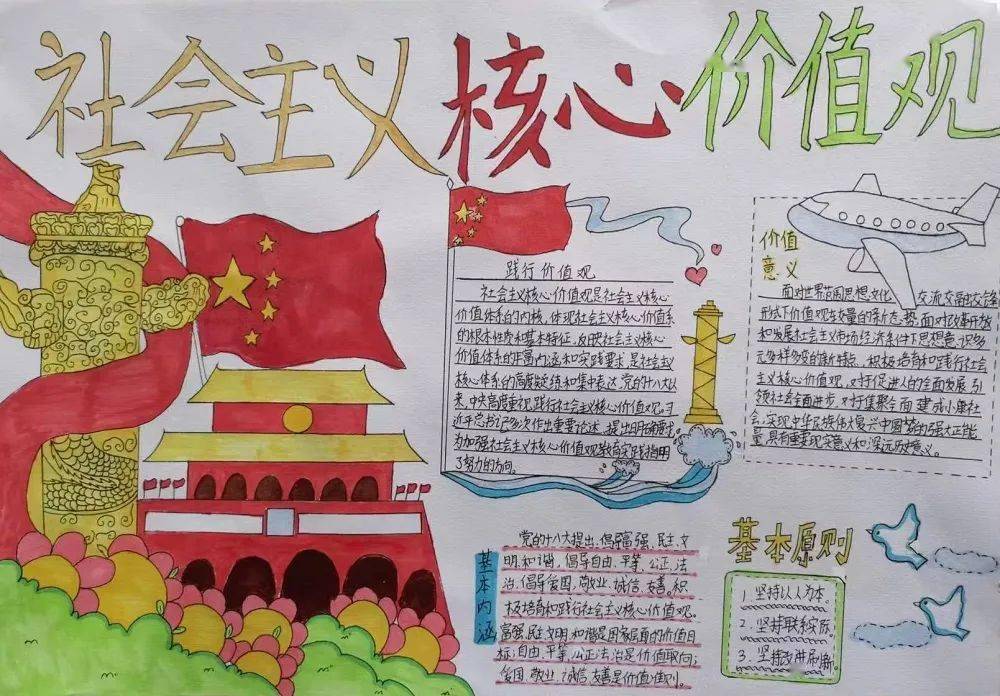 社会主义核心价值观
践行价值观
社会主义核心价值观是社会主义核心
价值体系的内核,体现社会主义核心价值体系
的根本性质和基本特征,反映社会主义核心
价值体系的丰富内涵和实践要求,是社会主义
核心体系的高度凝练和集中表达,党的十八大以
来,中央高度重视践行社会主义核心价值观。习
近平总书记多次作出重要论述、提出明确要求
为加强社会主义核心价值观教育实践指明
了努力的方向。
价值
意义
面对世界范围思想文化 交流交融交锋
形式下价值观较量的新态势,面对改革开放
和发展社会主义市场经济条件下思想意识多
元多样多变的新特点,积极培育和践行社会主
义核心价值观,对于促进人的全面发展,引
领社会全面进步,对于集聚全面建成小康社
会,实现中华民族伟大复兴中国梦的强大正能
量,具有重要现实意义和深远历史意义。
基本内涵
党的十八大提出,倡导富强、民主、文
明、和谐,倡导自由、平等、公正、法
治,倡导爱国、敬业、诚信、友善。积
极培育和践行社会主义核心价值观。
富强、民主、文明、和谐是国家层面的价值目
标;自由、平等、公正、法治是价值取向;
爱国、敬业、诚信、友善是价值准则。
基本原则
1. 坚持以人为本。
2. 坚持联系实际。
3. 坚持改进创新。